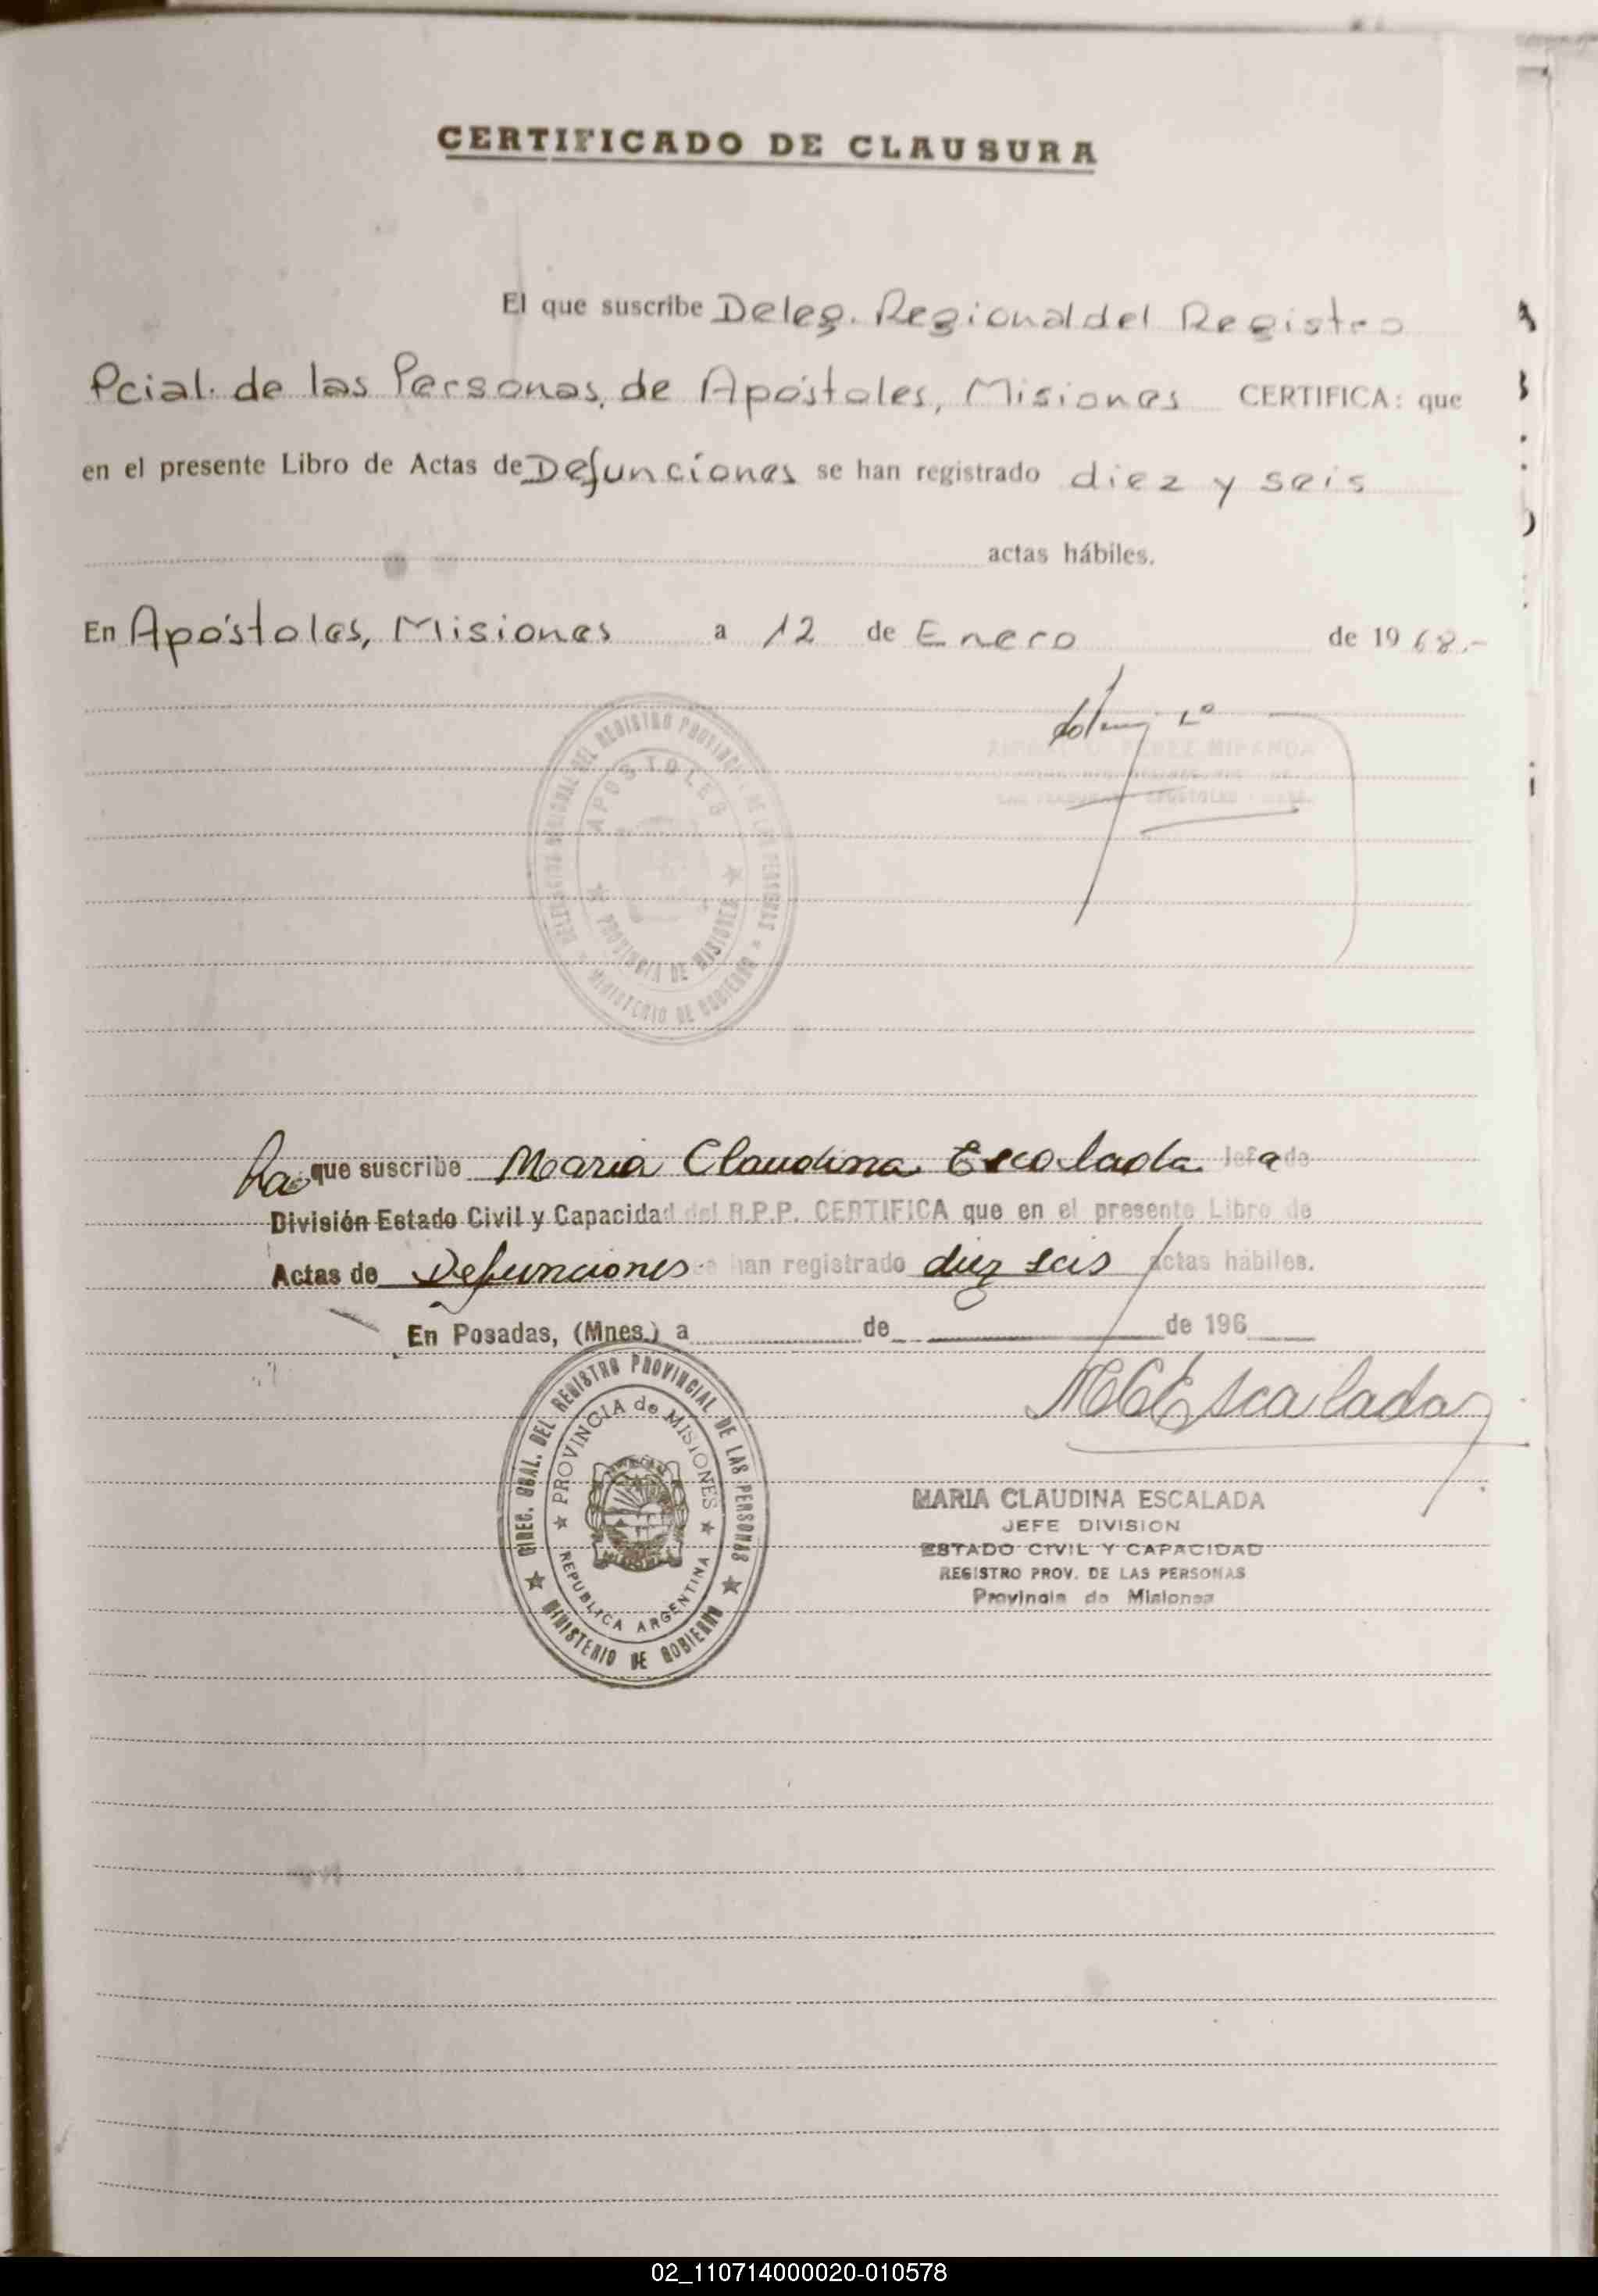 CERTIFICADO DE CLAUSURA
El que suscribe Deleg. Regional del Registro
Pcial. de las Personas, de Apóstoles, Misiones CERTIFICA: que
en el presente Libro de Actas de Defunciones se han registrado diez y seis
actas hábiles.
En Apóstoles, Misiones a 12 de Enero de 1968.-
DEL REGISTRO PROVINCIAL DE LAS PERSONAS
APOSTOLES
PROVINCIA DE MISIONES
MINISTERIO DE GOBIERNO
PEREZ MIRANDA
APOSTOLES
La que suscribe Maria Claudina Escalada Jefa de
División Estado Civil y Capacidad del R.P.P. CERTIFICA que en el presente Libro de
Actas de Defunciones se han registrado diez seis actas hábiles.
En Posadas, (Mnes.) a de de 196
DIREC. GRAL. DEL REGISTRO PROVINCIAL DE LAS PERSONAS
PROVINCIA de MISIONES
REPUBLICA ARGENTINA
MINISTERIO DE GOBIERNO
MCEscalada
MARIA CLAUDINA ESCALADA
JEFE DIVISION
ESTADO CIVIL Y CAPACIDAD
REGISTRO PROV. DE LAS PERSONAS
Provincia de Misiones
02_110714000020-010578